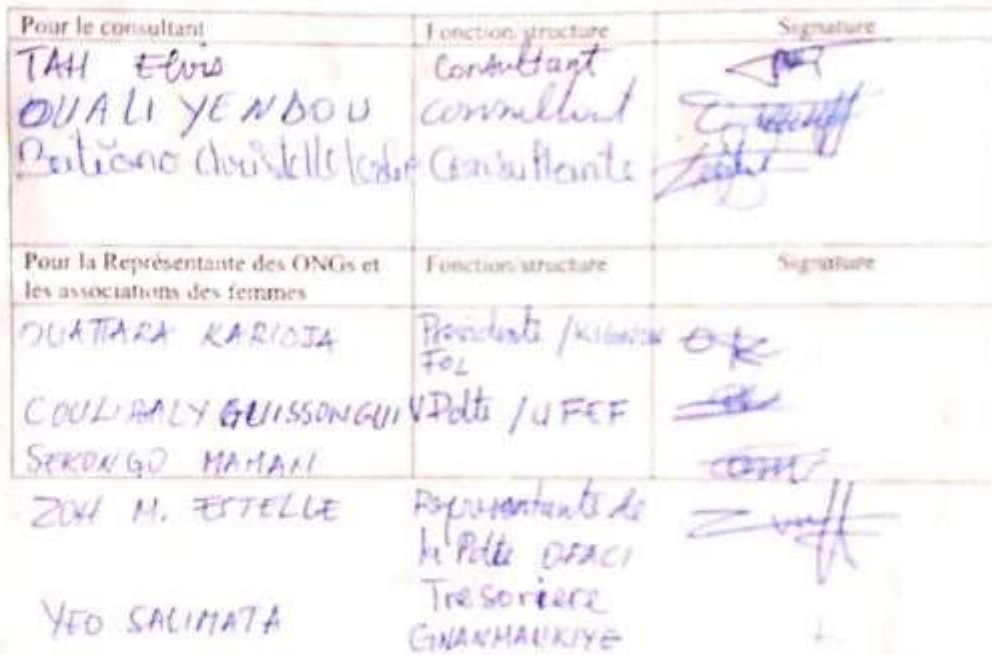 Pour le consultant Fonction/structure Signature
TAH Elvis Consultant
OUALI YENDOU Consultant
Christelle Consultante
Pour la Représentante des ONGs et Fonction/structure Signature
les associations des femmes
OUATTARA KARIDJA Présidente /
FOL
COULIBALY GUISSONGUI VPdtte / UFEF
SEKONGO MAMAN
ZOH M. ESTELLE Représentante de
la Pdte OFACI
YEO SALIMATA Tresoriere
GNANMANKIYE